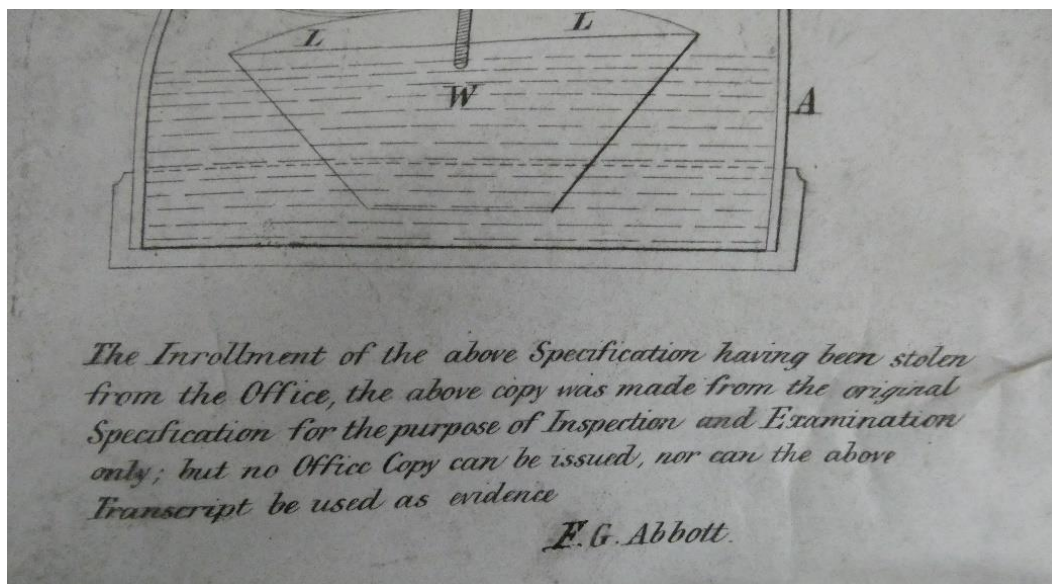 L L
W
A
The Inrollment of the above Specification having been stolen
from the Office, the above copy was made from the original
Specification for the purpose of Inspection and Examination
only; but no Office Copy can be issued, nor can the above
Transcript be used as evidence
F. G. Abbott.